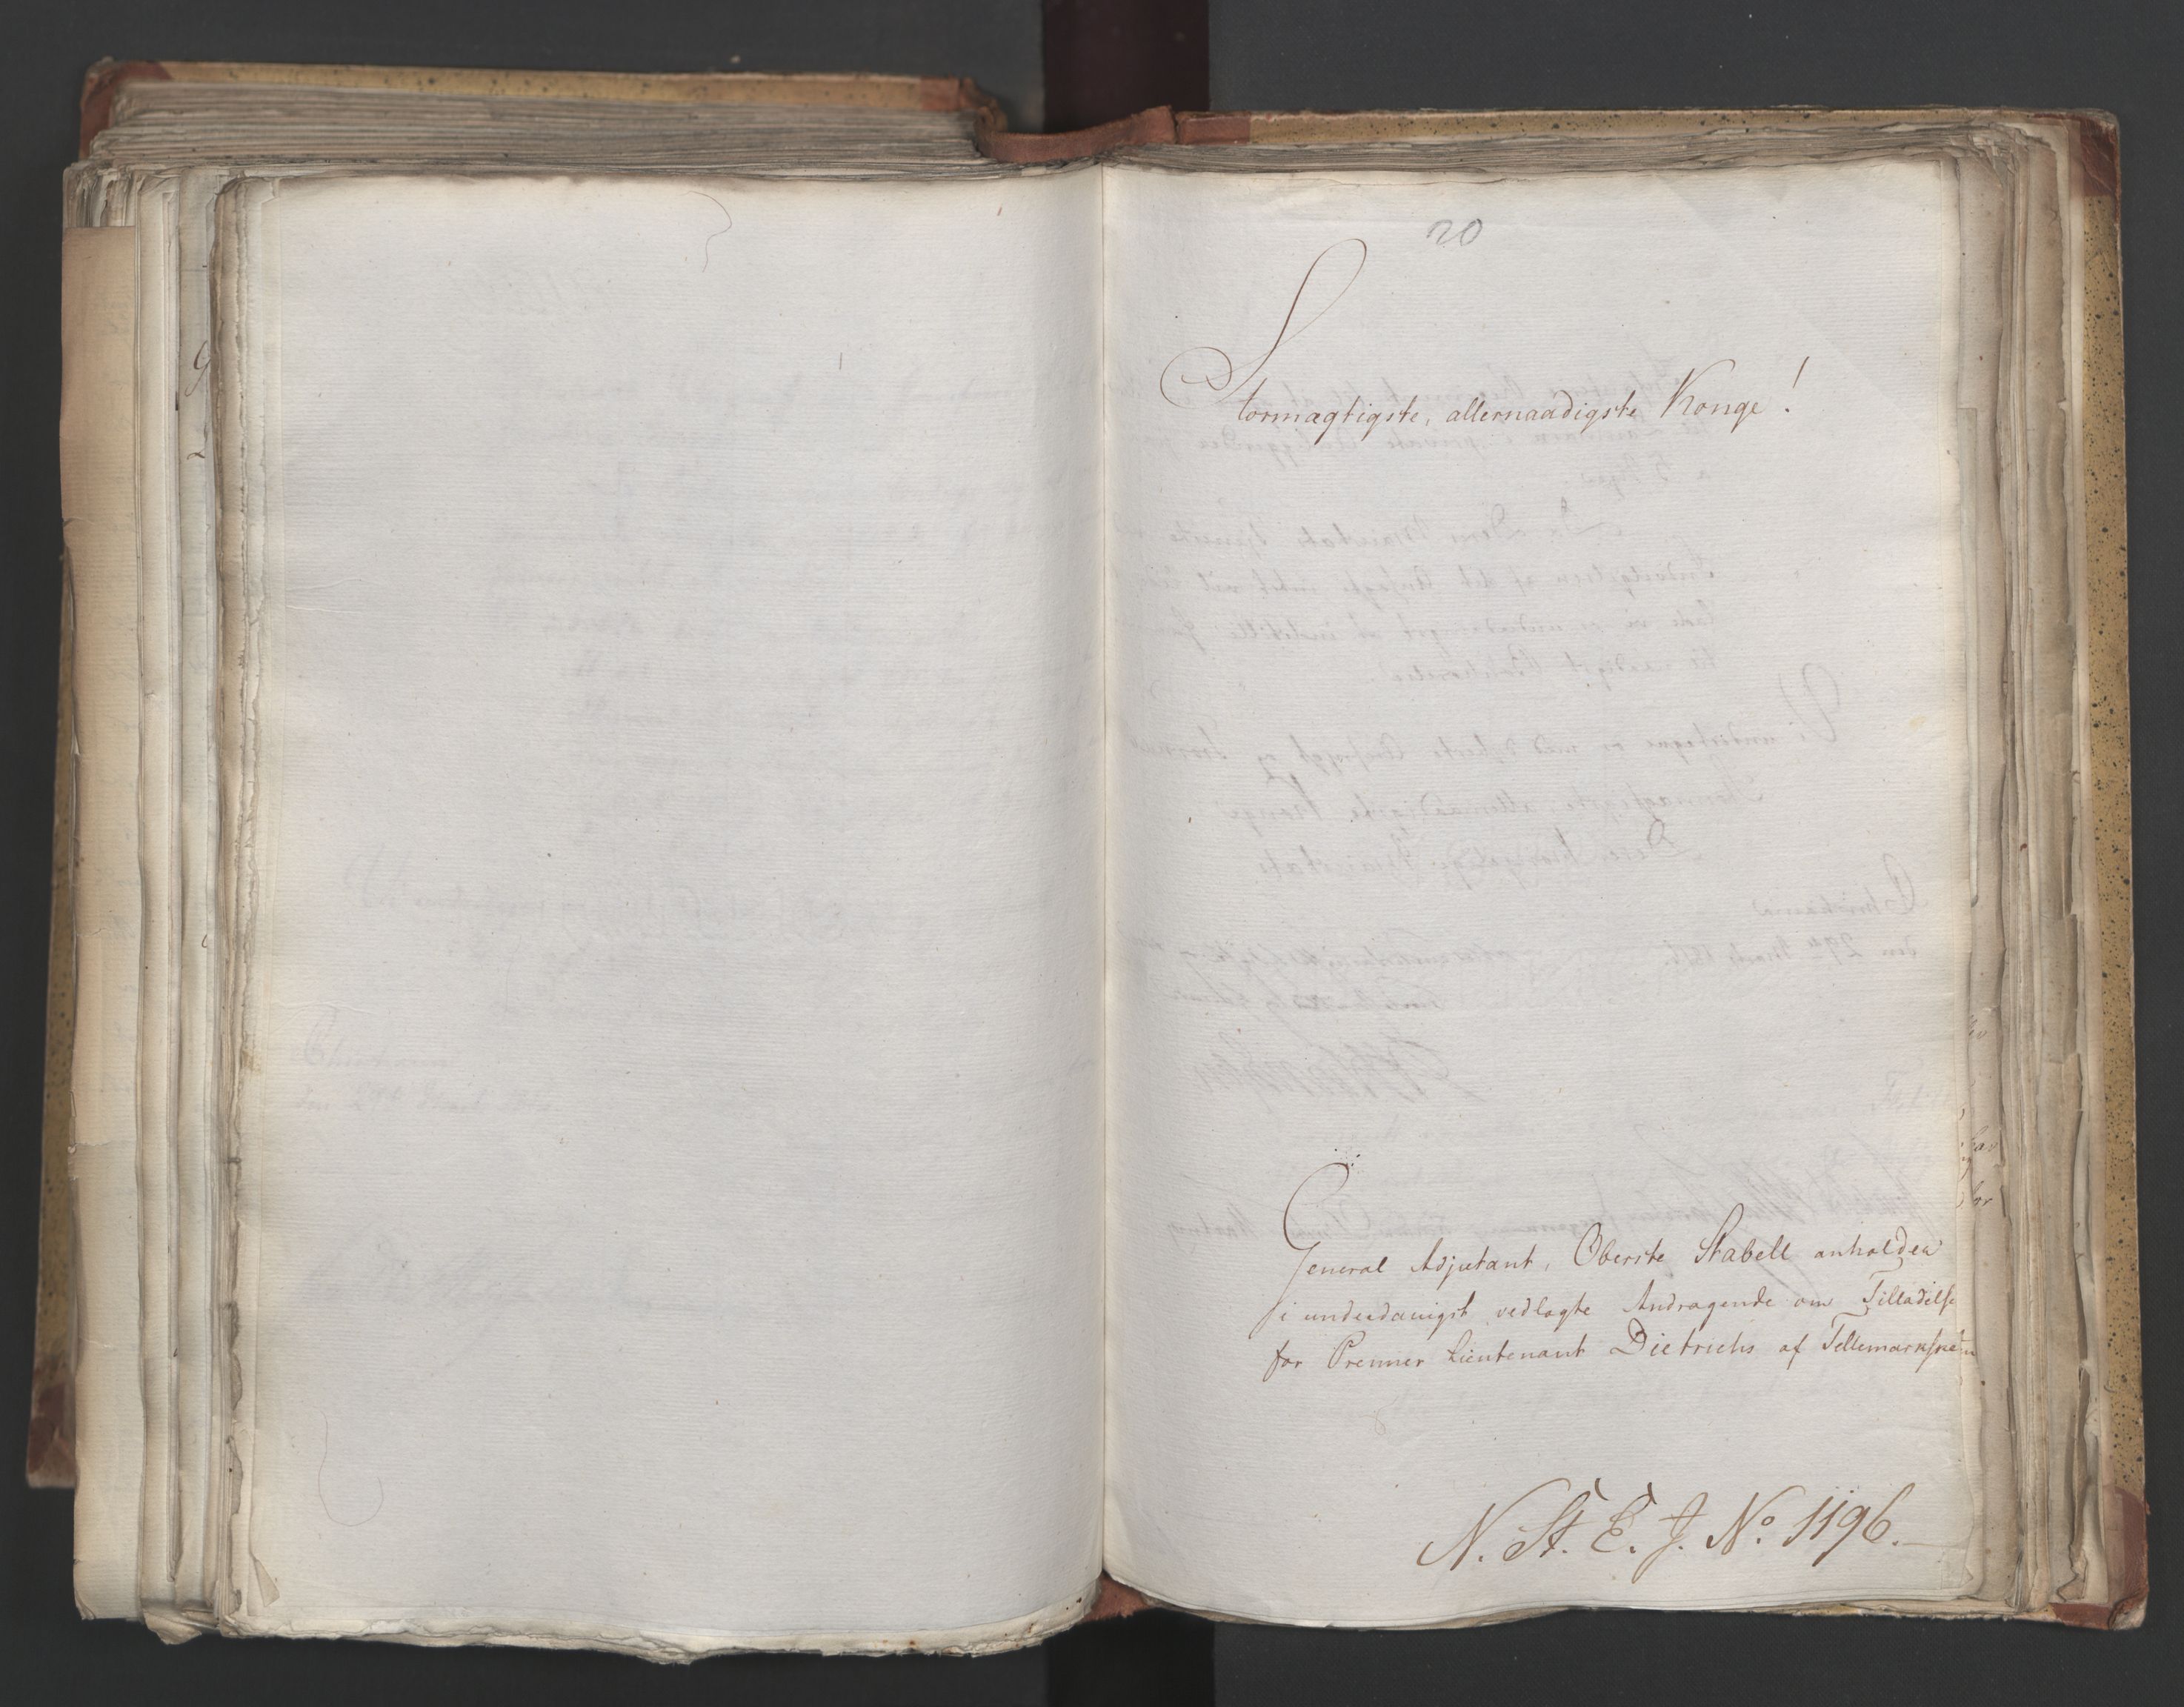 20
Stormægtigste, allernaadigste Konge!
General Adjutant, Oberste Stabell anholder
i underdanigst vedlagte Andragende om Tilladelse
for Premier Lieutenant Dietrichs af Tellemarkske
N. St. E. J. No. 1196.